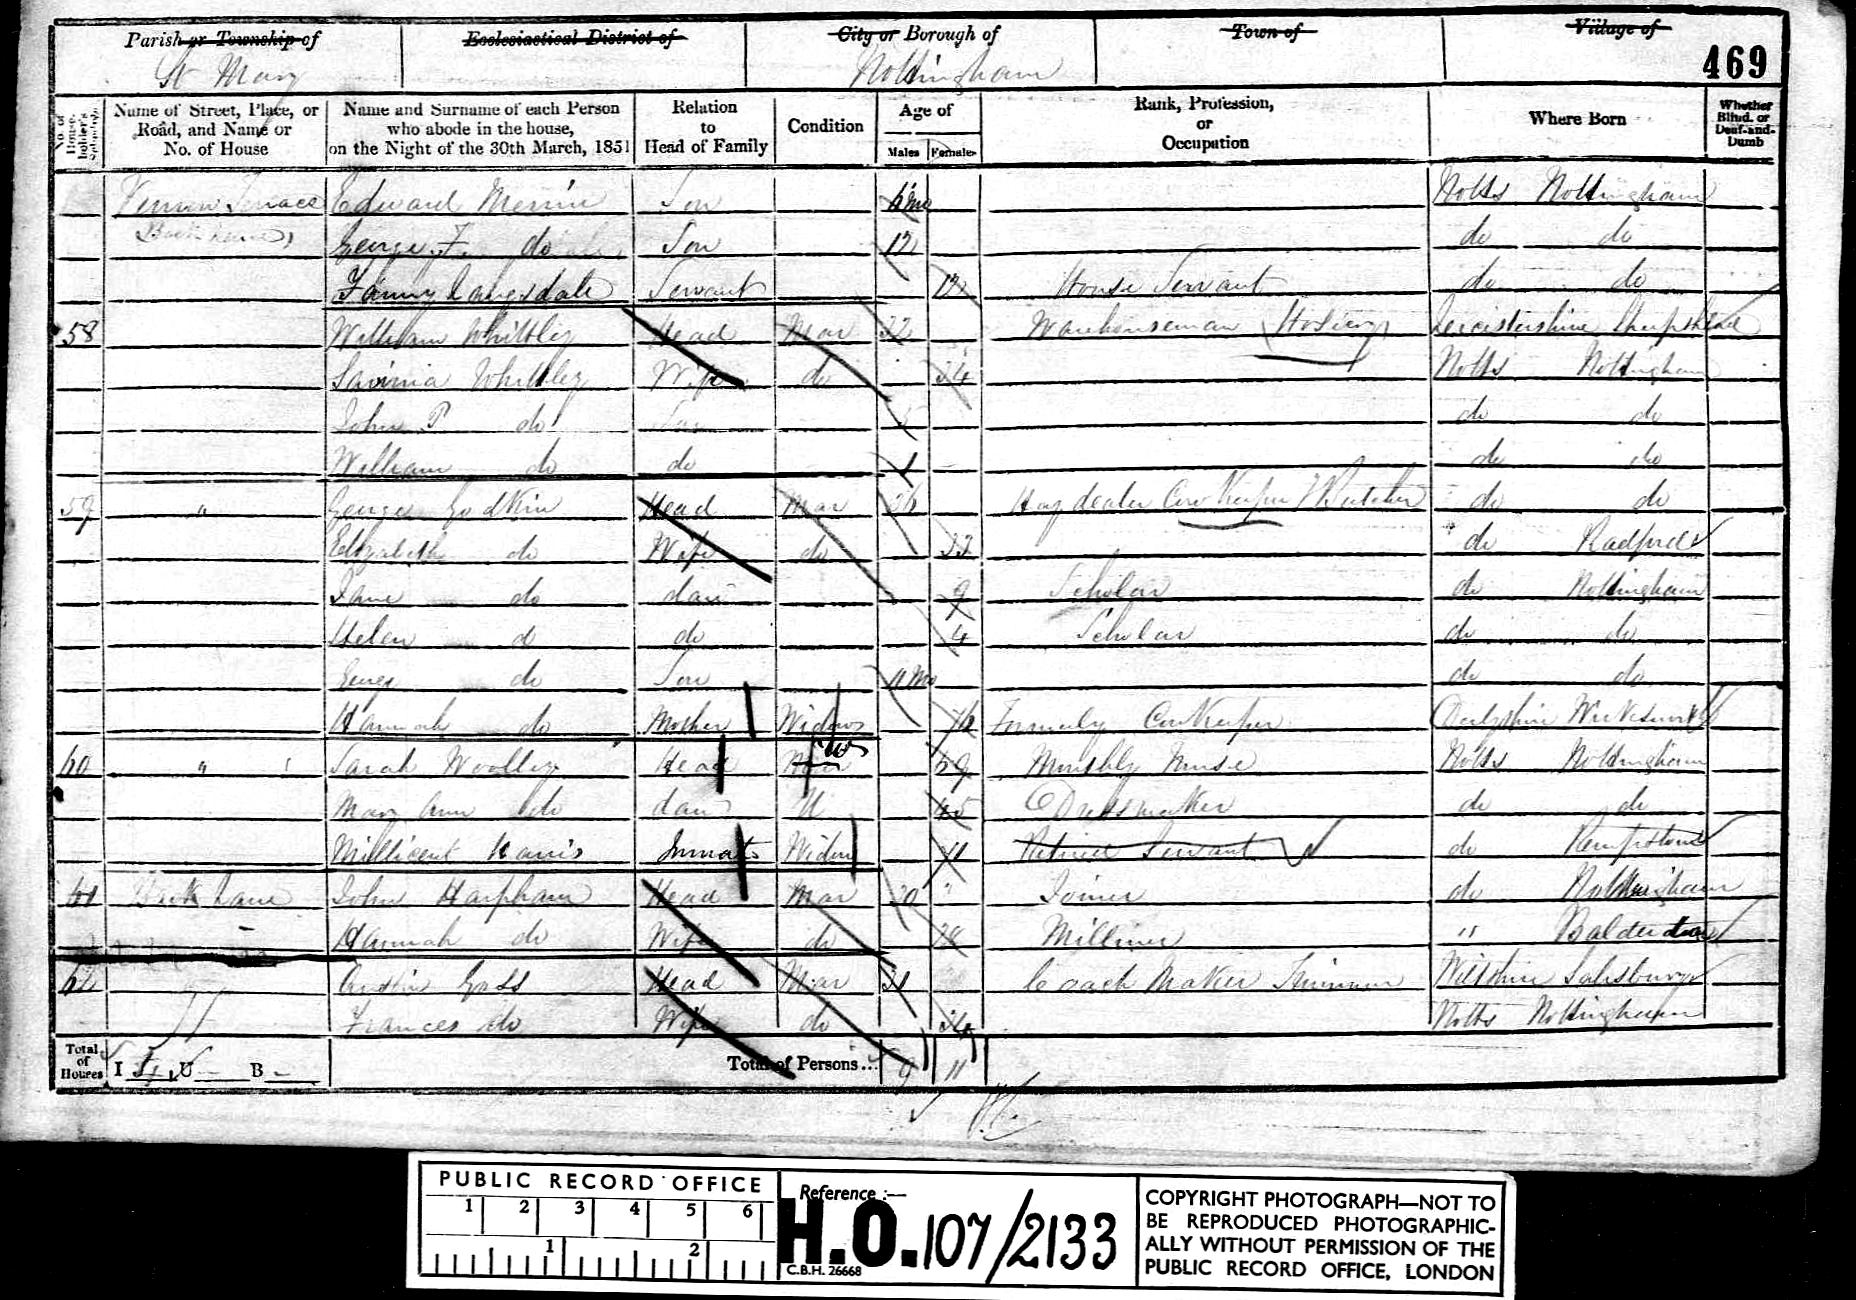 Parish or Township of Ecclesiastical District of City or Borough of Town of Village of
St Mary Nottingham 469
No. of House-holder's Schedule Name of Street, Place, or Road, and Name or No. of House Name and Surname of each Person who abode in the house, on the Night of the 30th March, 1851 Relation to Head of Family Condition Age of Males Females Rank, Profession, or Occupation Where Born Whether Blind, or Deaf-and-Dumb
Vernon Terrace Edward Son Notts Nottingham
George F. do Son 12 do do
Fanny Langsdale Servant House Servant do do
58 William Whittley Head Mar 32 Warehouseman (Hosiery) Leicestershire Sheepshead
Lavinia Whittley Wife do 34 Notts Nottingham
John P do Son 5 do do
William do do 1 do do
59 " George Godkin Head Mar 36 Hay dealer Cow Keeper & Butcher do do
Elizabeth do Wife do 33 do Radford
Jane do daur 9 Scholar do Nottingham
Helen do do 4 Scholar do do
George do Son 11 Mo do do
Hannah do Mother Widow Formerly Cow Keeper Derbyshire Wirksworth
60 " Sarah Woolley Head W Monthly Nurse Notts Nottingham
Mary Ann do daur U 45 Dressmaker do do
Millicent Harris Inmate Widow 71 Retired Servant do Rempstone
61 Back Lane John Harpham Head Mar 30 " Joiner do Nottingham
Hannah do Wife do 28 Milliner " Balderton
62 Austin Goss Head Mar 31 Coach Maker Trimmer Wiltshire Salisbury
" Frances do Wife do 34 Notts Nottingham
Total of Houses I U B Total of Persons... 9 11
PUBLIC RECORD OFFICE
1 2 3 4 5 6
1 2
Reference :—
H.O. 107/2133
C.B.H. 26668
COPYRIGHT PHOTOGRAPH—NOT TO
BE REPRODUCED PHOTOGRAPHIC-
ALLY WITHOUT PERMISSION OF THE
PUBLIC RECORD OFFICE, LONDON